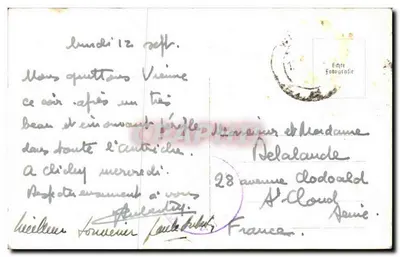 lundi 12 sept.
Nous quittons Vienne
ce soir après un très
beau et
dans toute l'Autriche.
A Clichy mercredi.
Respectueusement à vous
Meilleur souvenir
Echte
Fotografie
Monsieur et Madame
Delalande
28 avenue Clodoald
St Cloud
Seine
France